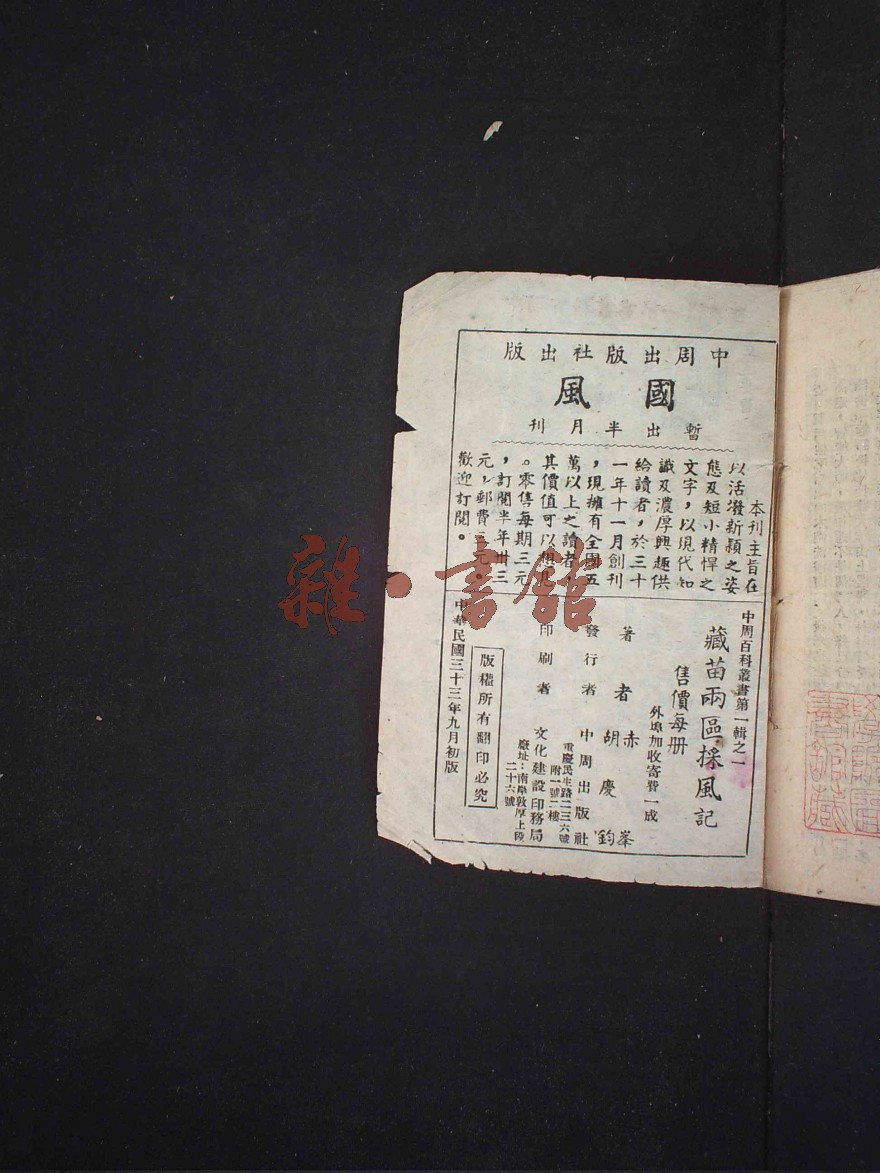 中周出版社出版
國風
暫出半月刊
本刊主旨在
以活潑新穎之姿
態及短小精悍之
文字，以現代知
識及濃厚興趣供
給讀者，於三十
一年十一月創刊
，現擁有全國五
萬以上之讀者，
其價值可以想見
。零售每期三元
，訂閱半年卅三
元，郵費三元。
歡迎訂閱。
中周百科叢書第一輯之一
藏苗兩區採風記
售價每册
外埠加收寄費一成
著者 赤峯
胡慶鈞
發行者 中周出版社
重慶民生路二三六號
附一號二樓
印刷者 文化建設印務局
廠址：南岸敦厚上段
二十六號
版權所有翻印必究
中華民國三十三年九月初版
雜·書館
書館藏